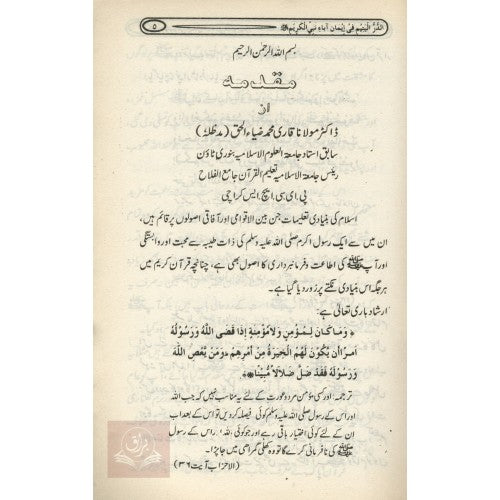 الدُّرُّ الْیَتِیْم فِیْ اِیْمَان آبَاءِ نَبِیِّ الْکَرِیْم ﷺ ۵
بسم اللہ الرحمٰن الرحیم
مقدمہ
از
ڈاکٹر مولانا قاری محمد ضیاء الحق (مدظلہٗ)
سابق استاد جامعۃ العلوم الاسلامیہ بنوری ٹاؤن
رئیس جامعۃ الاسلامیہ تعلیم القرآن جامع الفلاح
پی۔ای۔سی۔ایچ۔ایس کراچی
اسلام کی بنیادی تعلیمات جن بین الاقوامی اور آفاقی اصولوں پر قائم ہیں،
ان میں سے ایک رسول اکرم صلی اللہ علیہ وسلم کی ذات طیبہ سے محبت اور وابستگی
اور آپ ﷺ کی اطاعت وفرمانبرداری کا اصول بھی ہے، چنانچہ قرآن کریم میں
ہر جگہ اس بنیادی نکتے پر زور دیا گیا ہے۔
ارشاد باری تعالیٰ ہے:
﴿ وَمَا كَانَ لِمُؤْمِنٍ وَّلَا مُؤْمِنَةٍ اِذَا قَضَى اللّٰهُ وَرَسُوْلُهٗ
اَمْرًا اَنْ يَّكُوْنَ لَهُمُ الْخِيَرَةُ مِنْ اَمْرِهِمْ ؕ وَمَنْ يَّعْصِ اللّٰهَ
وَرَسُوْلَهٗ فَقَدْ ضَلَّ ضَلٰلًا مُّبِيْنًا ﴾
ترجمہ: اور کسی مؤمن مرد و عورت کے لئے یہ مناسب نہیں کہ جب اللہ
اور اس کے رسول صلی اللہ علیہ وسلم کوئی فیصلہ کردیں تو اس کے بعد اب
ان کے لئے کوئی اختیار باقی رہے اور جو کوئی اللہ اور اس کے رسول
ﷺ کی نافرمانی کرے گا تو وہ کھلی گمراہی میں جاپڑا۔
(الاحزاب آیت ۳۶)